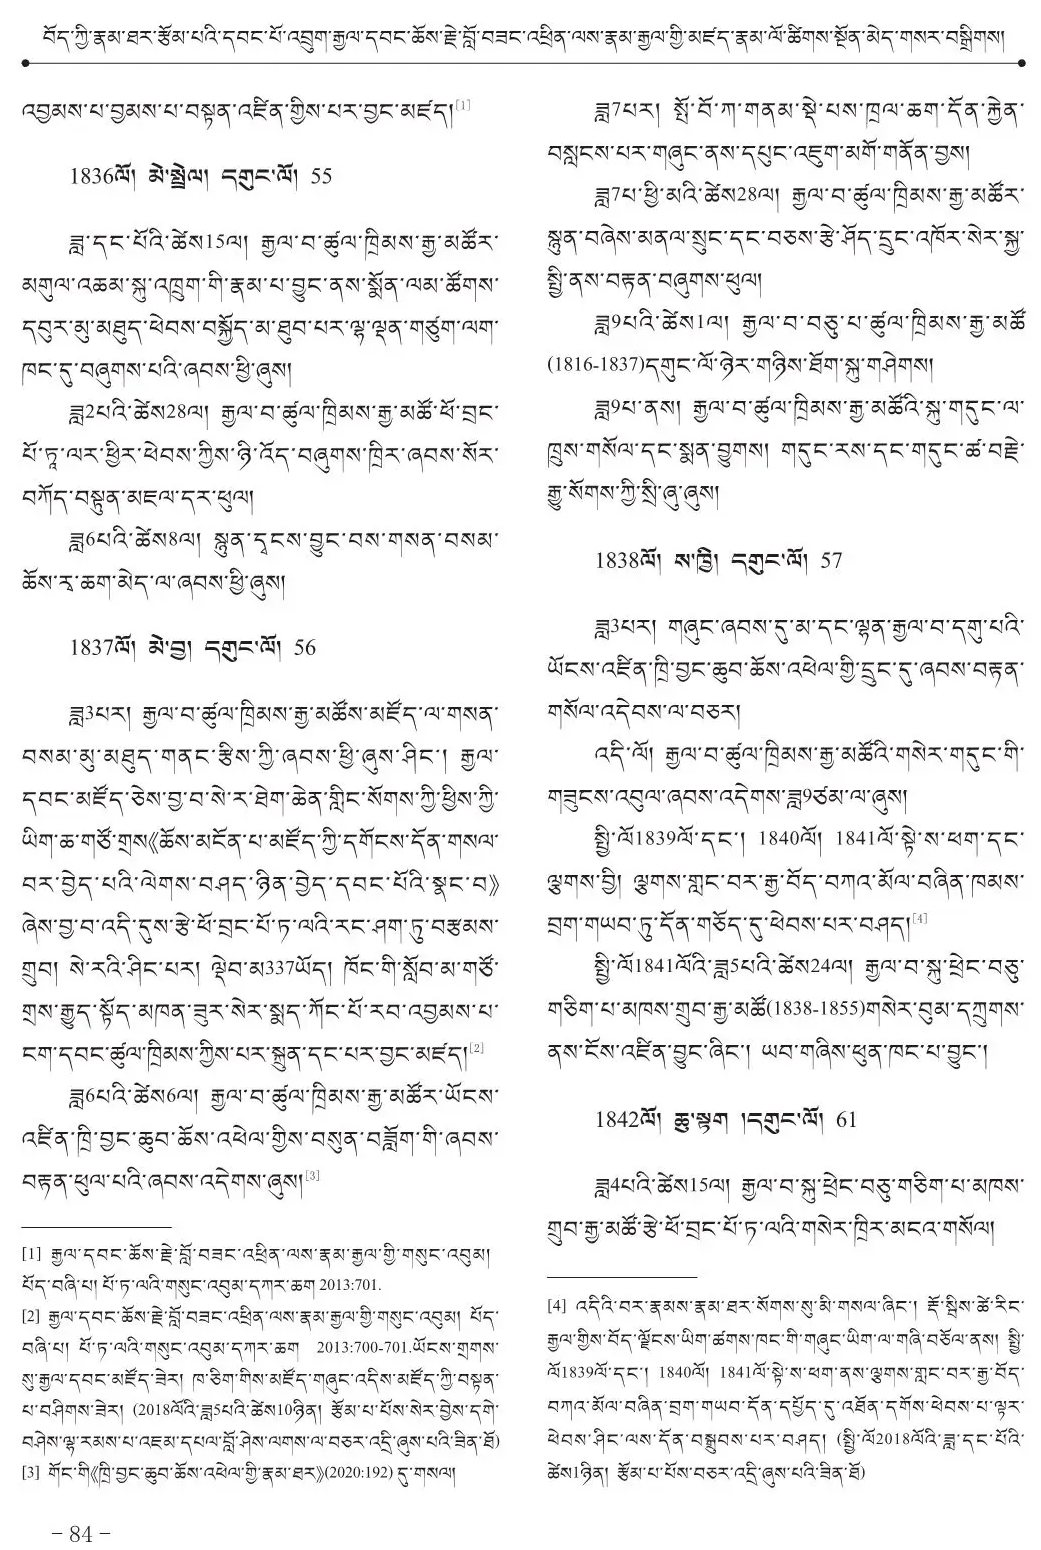 བོད་ཀྱི་རྣམ་ཐར་རྩོམ་པའི་དབང་པོ་འབྲུག་རྒྱལ་དབང་ཆོས་རྗེ་བློ་བཟང་འཕྲིན་ལས་རྣམ་རྒྱལ་གྱི་མཛད་རྣམ་ལོ་ཚིགས་སྔོན་མེད་གསར་བསྒྲིགས།
འབྱམས་པ་བྱམས་པ་བསྟན་འཛིན་གྱིས་པར་བྱང་མཛད།[1]
1836ལོ། མེ་སྤྲེལ། དགུང་ལོ། 55
ཟླ་དང་པོའི་ཚེས15ལ། རྒྱལ་བ་ཚུལ་ཁྲིམས་རྒྱ་མཚོར་
མགུལ་འཆམ་སྐུ་འཁྲུག་གི་རྣམ་པ་བྱུང་ནས་སྨོན་ལམ་ཚོགས་
དབུར་མུ་མཐུད་ཕེབས་བསྐྱོད་མ་ཐུབ་པར་ལྷ་ལྡན་གཙུག་ལག་
ཁང་དུ་བཞུགས་པའི་ཞབས་ཕྱི་ཞུས།
ཟླ2པའི་ཚེས28ལ། རྒྱལ་བ་ཚུལ་ཁྲིམས་རྒྱ་མཚོ་ཕོ་བྲང་
པོ་ཏཱ་ལར་ཕྱིར་ཕེབས་ཀྱིས་ཉི་འོད་བཞུགས་ཁྲིར་ཞབས་སོར་
བཀོད་བསྟུན་མཇལ་དར་ཕུལ།
ཟླ6པའི་ཚེས8ལ། སྙུན་དྭངས་བྱུང་བས་གསན་བསམ་
ཆོས་རྭ་ཆག་མེད་ལ་ཞབས་ཕྱི་ཞུས།
1837ལོ། མེ་བྱ། དགུང་ལོ། 56
ཟླ3པར། རྒྱལ་བ་ཚུལ་ཁྲིམས་རྒྱ་མཚོས་མཛོད་ལ་གསན་
བསམ་མུ་མཐུད་གནང་རྩིས་ཀྱི་ཞབས་ཕྱི་ཞུས་ཤིང་། རྒྱལ་
དབང་མཛོད་ཅེས་བྱ་བ་སེ་ར་ཐེག་ཆེན་གླིང་སོགས་ཀྱི་ཕྱིས་ཀྱི་
ཡིག་ཆ་གཙོ་གྲས《ཆོས་མངོན་པ་མཛོད་ཀྱི་དགོངས་དོན་གསལ་
བར་བྱེད་པའི་ལེགས་བཤད་ཉིན་བྱེད་དབང་པོའི་སྣང་བ》
ཞེས་བྱ་བ་འདི་དུས་རྩེ་ཕོ་བྲང་པོ་ཏ་ལའི་རང་ཤག་ཏུ་བརྩམས་
གྲུབ། སེ་རའི་ཤིང་པར། ལྡེབ་མ337ཡོད། ཁོང་གི་སློབ་མ་གཙོ་
གྲས་རྒྱུད་སྟོད་མཁན་ཟུར་སེར་སྨད་ཀོང་པོ་རབ་འབྱམས་པ་
ངག་དབང་ཚུལ་ཁྲིམས་ཀྱིས་པར་སྐྲུན་དང་པར་བྱང་མཛད།[2]
ཟླ6པའི་ཚེས6ལ། རྒྱལ་བ་ཚུལ་ཁྲིམས་རྒྱ་མཚོར་ཡོངས་
འཛིན་ཁྲི་བྱང་ཆུབ་ཆོས་འཕེལ་གྱིས་བསུན་བཟློག་གི་ཞབས་
བརྟན་ཕུལ་པའི་ཞབས་འདེགས་ཞུས།[3]
[1] རྒྱལ་དབང་ཆོས་རྗེ་བློ་བཟང་འཕྲིན་ལས་རྣམ་རྒྱལ་གྱི་གསུང་འབུམ།
པོད་བཞི་པ། པོ་ཏ་ལའི་གསུང་འབུམ་དཀར་ཆག 2013:701.
[2] རྒྱལ་དབང་ཆོས་རྗེ་བློ་བཟང་འཕྲིན་ལས་རྣམ་རྒྱལ་གྱི་གསུང་འབུམ། པོད་
བཞི་པ། པོ་ཏ་ལའི་གསུང་འབུམ་དཀར་ཆག 2013:700-701.ཡོངས་གྲགས་
སུ་རྒྱལ་དབང་མཛོད་ཟེར། ཁ་ཅིག་གིས་མཛོད་གཞུང་འདིས་མཛོད་ཀྱི་བསྟན་
པ་བཤིགས་ཟེར། (2018ལོའི་ཟླ5པའི་ཚེས10ཉིན། རྩོམ་པ་པོས་སེར་བྱེས་དགེ་
བཤེས་ལྷ་རམས་པ་འཇམ་དཔལ་བློ་ཤེས་ལགས་ལ་བཅར་འདྲི་ཞུས་པའི་ཟིན་ཐོ)
[3] གོང་གི《ཁྲི་བྱང་ཆུབ་ཆོས་འཕེལ་གྱི་རྣམ་ཐར》(2020:192) དུ་གསལ།
ཟླ7པར། སྤོ་བོ་ཀ་གནམ་སྡེ་པས་ཁྲལ་ཆག་དོན་རྐྱེན་
བསླངས་པར་གཞུང་ནས་དཔུང་འཇུག་མགོ་གནོན་བྱས།
ཟླ7པ་ཕྱི་མའི་ཚེས28ལ། རྒྱལ་བ་ཚུལ་ཁྲིམས་རྒྱ་མཚོར་
སྙུན་བཞེས་མནལ་སྲུང་དང་བཅས་རྩེ་ཤོད་དྲུང་འཁོར་སེར་སྐྱ་
སྤྱི་ནས་བརྟན་བཞུགས་ཕུལ།
ཟླ9པའི་ཚེས1ལ། རྒྱལ་བ་བཅུ་པ་ཚུལ་ཁྲིམས་རྒྱ་མཚོ
(1816-1837)དགུང་ལོ་ཉེར་གཉིས་ཐོག་སྐུ་གཤེགས།
ཟླ9པ་ནས། རྒྱལ་བ་ཚུལ་ཁྲིམས་རྒྱ་མཚོའི་སྐུ་གདུང་ལ་
ཁྲུས་གསོལ་དང་སྨན་བྱུགས། གདུང་རས་དང་གདུང་ཚ་བརྗེ་
རྒྱུ་སོགས་ཀྱི་སྲི་ཞུ་ཞུས།
1838ལོ། ས་ཁྱི། དགུང་ལོ། 57
ཟླ3པར། གཞུང་ཞབས་དུ་མ་དང་ལྷན་རྒྱལ་བ་དགུ་པའི་
ཡོངས་འཛིན་ཁྲི་བྱང་ཆུབ་ཆོས་འཕེལ་གྱི་དྲུང་དུ་ཞབས་བརྟན་
གསོལ་འདེབས་ལ་བཅར།
འདི་ལོ། རྒྱལ་བ་ཚུལ་ཁྲིམས་རྒྱ་མཚོའི་གསེར་གདུང་གི་
གཟུངས་འབུལ་ཞབས་འདེགས་ཟླ9ཙམ་ལ་ཞུས།
སྤྱི་ལོ1839ལོ་དང་། 1840ལོ། 1841ལོ་སྟེ་ས་ཕག་དང་
ལྕགས་བྱི། ལྕགས་གླང་བར་རྒྱ་བོད་བཀའ་མོལ་བཞིན་ཁམས་
བྲག་གཡབ་ཏུ་དོན་གཅོད་དུ་ཕེབས་པར་བཤད།[4]
སྤྱི་ལོ1841ལོའི་ཟླ5པའི་ཚེས24ལ། རྒྱལ་བ་སྐུ་ཕྲེང་བཅུ་
གཅིག་པ་མཁས་གྲུབ་རྒྱ་མཚོ(1838-1855)གསེར་བུམ་དཀྲུགས་
ནས་ངོས་འཛིན་བྱུང་ཞིང་། ཡབ་གཞིས་ཕུན་ཁང་པ་བྱུང་།
1842ལོ། ཆུ་སྟག །དགུང་ལོ། 61
ཟླ4པའི་ཚེས15ལ། རྒྱལ་བ་སྐུ་ཕྲེང་བཅུ་གཅིག་པ་མཁས་
གྲུབ་རྒྱ་མཚོ་རྩེ་ཕོ་བྲང་པོ་ཏ་ལའི་གསེར་ཁྲིར་མངའ་གསོལ།
[4] འདིའི་བར་རྣམས་རྣམ་ཐར་སོགས་སུ་མི་གསལ་ཞིང་། རྡོ་སྦིས་ཚེ་རིང་
རྒྱལ་གྱིས་བོད་ལྗོངས་ཡིག་ཚགས་ཁང་གི་གཞུང་ཡིག་ལ་གཞི་བཅོལ་ནས། སྤྱི་
ལོ1839ལོ་དང་། 1840ལོ། 1841ལོ་སྟེ་ས་ཕག་ནས་ལྕགས་གླང་བར་རྒྱ་བོད་
བཀའ་མོལ་བཞིན་བྲག་གཡབ་དོན་དཔྱོད་དུ་འཐོན་དགོས་ཕེབས་པ་ལྟར་
ཕེབས་ཤིང་ལས་དོན་བསྒྲུབས་པར་བཤད། (སྤྱི་ལོ2018ལོའི་ཟླ་དང་པོའི་
ཚེས1ཉིན། རྩོམ་པ་པོས་བཅར་འདྲི་ཞུས་པའི་ཟིན་ཐོ)
- 84 -